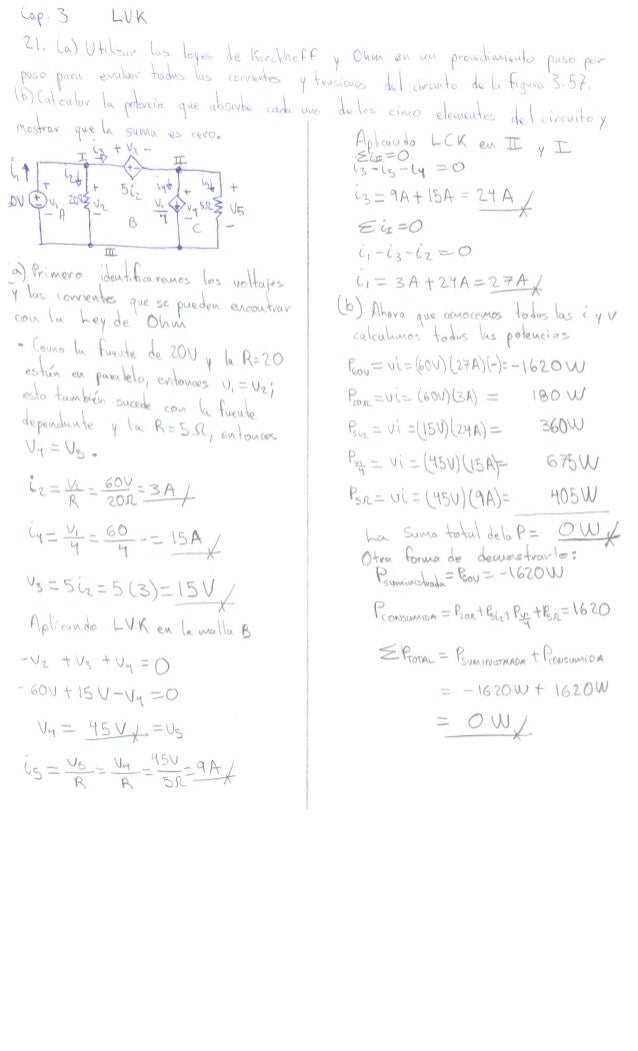 Cap. 3 LVK
21. (a) Utilizar las leyes de Kirchhoff y Ohm en un procedimiento paso por
paso para evaluar todas las corrientes y tensiones del circuito de la figura 3.57.
(b) Calcular la potencia que absorbe cada uno de los cinco elementos del circuito y
mostrar que la suma es cero.
I i3 + V3 - II
i1 i2 + 5i2 i4 + i5 +
60V + V1 20Ω V2 V1/4 V4 5Ω V5
- A - B - C -
III
a) Primero identificaremos los voltajes
y las corrientes que se pueden encontrar
con la Ley de Ohm
- Como la fuente de 20V y la R=20
están en paralelo, entonces V1 = V2;
esto también sucede con la fuente
dependiente y la R=5Ω, entonces
V4 = V5.
i2 = V2/R = 60V/20Ω = 3A
i4 = V1/4 = 60/4 = 15A
V3 = 5i2 = 5(3) = 15V
Aplicando LVK en la malla B
-V2 + V3 + V4 = 0
-60V + 15V - V4 = 0
V4 = 45V = V5
i5 = V5/R = V4/R = 45V/5Ω = 9A
Aplicando LCK en II y I
ΣiII = 0
i3 - i5 - i4 = 0
i3 = 9A + 15A = 24A
ΣiI = 0
i1 - i3 - i2 = 0
i1 = 3A + 24A = 27A
(b) Ahora que conocemos todas las i y v
calculamos todas las potencias
P60V = vi = (60V)(27A)(-) = -1620W
P20Ω = vi = (60V)(3A) = 180W
P5i2 = vi = (15V)(24A) = 360W
PV1/4 = vi = (45V)(15A) = 675W
P5Ω = vi = (45V)(9A) = 405W
La suma total de la P = 0W
Otra forma de demostrarlo:
Psuministrada = P60V = -1620W
PCONSUMIDA = P20Ω + P5i2 + PV1/4 + P5Ω = 1620
ΣPTOTAL = PSUMINISTRADA + PCONSUMIDA
= -1620W + 1620W
= 0W